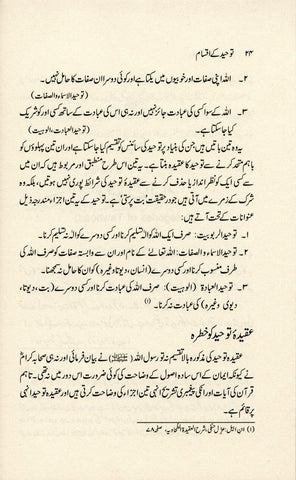 ۲۴ توحید کے اقسام
۲۔ اللہ اپنی صفات اور خوبیوں میں یکتا ہے اور کوئی دوسرا ان صفات کا حامل نہیں۔
(توحید الاسماء والصفات)
۳۔ اللہ کے سوا کسی کی عبادت جائز نہیں اور نہ ہی اس کی عبادت کے ساتھ کسی اور کو شریک
کیا جا سکتا ہے۔ (توحید العبادت، الوہیت)
یہ وہ تین باتیں ہیں جن کی بنیاد پر توحید کی سائنس کو تقسیم کیا جاتا ہے اور ان تین پہلوؤں کو
باہم متحد کرنے سے توحید کا عقیدہ بنتا ہے۔ یہ تین اس طرح منطبق اور مربوط ہیں کہ ان میں
سے کسی ایک کو نظر انداز یا حذف کرنے سے عقیدۂ توحید کی شرائط پوری نہیں ہوتیں، بلکہ وہ
شرک کے زمرے میں آتی ہیں جو دراصل بت پرستی ہے۔ توحید کے یہ تین اجزاء مندرجہ ذیل
عنوانات کے تحت آتے ہیں:
۱۔ توحید الربوبیت: صرف ایک اللہ کو اللہ تسلیم کرنا اور کسی دوسرے کو الٰہ نہ تسلیم کرنا۔
۲۔ توحید الاسماء والصفات: اللہ تعالیٰ کے نام اور ان سے وابستہ صفات کو صرف اللہ کی
طرف منسوب کرنا اور کسی دوسرے (انسان، دیوتا وغیرہ) کو ان کا حامل نہ سمجھنا۔
۳۔ توحید العبادۃ (الوہیت): صرف اللہ کی عبادت کرنا اور کسی دوسرے (بت، دیوتا،
دیوی وغیرہ) کی عبادت نہ کرنا۔ (۱)
عقیدۂ توحید کو خطرہ
عقیدہ توحید کی مذکورہ بالا تقسیم نہ تو رسول اللہ (ﷺ) نے بیان فرمائی اور نہ ہی صحابہ کرامؓ
نے کیونکہ ایمان کے اس سادہ اصول کے وضاحت کی کوئی ضرورت اس دور میں نہ تھی۔ تاہم
قرآن کی آیات اور انکی پیغمبری تشریح انہی تین اجزاء کی وضاحت کرتی ہیں اور عقیدہ توحید انہی
پر قائم ہے۔
(۱) ابن ابی العز حنفی، شرح العقیدۃ الطحاویہ، صفحہ ۷۸